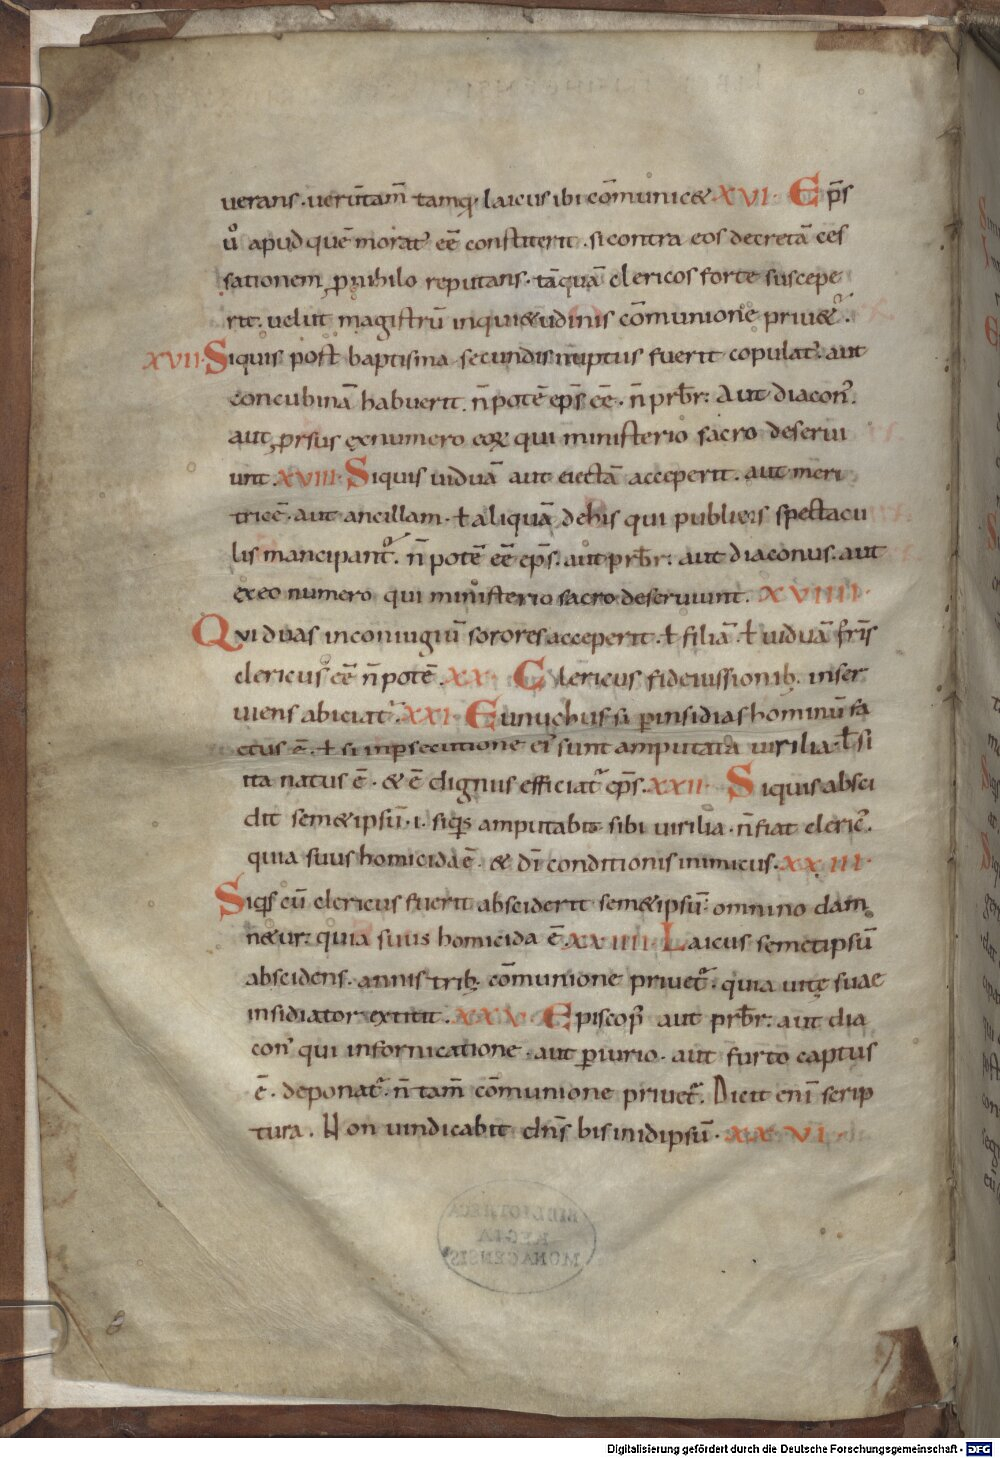 uerans. uerūtam̄ tamq; laicus ibi cōmunic& XVI. Ep̄s
ū apud quē morat᾽ eē constiterit. si contra eos decretā ces
sationem ꝓ nihilo reputans. tāquā clericos forte suscepe
rit. uelut magistrū inqui&udinis cōmunione priu&᾽.
XVII. Siquis post baptisma secundis nuptiis fuerit copulat᾽. aut
concubinā habuerit. n̄ potē ep̄s eē. n̄ prb̄r. Aut diacon᾽.
aut ꝓrsus ex numero eoꝝ qui ministerio sacro deserui
unt. XVIII. Siquis uiduā aut eiectā acceperit. aut meri
tricē. aut ancillam. ł aliquā de his qui publicis spectacu
lis mancipant᾽. n̄ potē eē ep̄s. aut prb̄r. aut diaconus. aut
ex eo numero qui ministerio sacro deseruiunt. XVIIII.
Qui duas in coniugiū sorores acceperit. ł filiā. ł uiduā fr̄is
clericus eē n̄ potē. XX. Clericus fideiussionib; inser
uiens abiciat᾽. XXI. Eunuchus si ꝑ insidias hominū fa
ctus ē. ł si in ꝑsecutione ei᾽ sunt amputata uirilia. ł si
ita natus ē. & ē dignus efficiat᾽ ep̄s. XXII. Siquis absci
dit sem&ipsū. i. siquis amputabit sibi uirilia. n̄ fiat cleric᾽.
quia suus homicida ē. & dī conditionis inimicus. XXIII.
Siqs cū clericus fuerit absciderit sem&ipsū. omnino dam
n&ur. quia suus homicida ē. XXIIII. Laicus semetipsū
abscidens. annis trib; cōmunione priuet᾽. quia uitę suae
insidiator extitit. XXV. Episcop᾽ aut prb̄r. aut dia
con᾽ qui in fornicatione. aut ꝑiurio. aut furto captus
ē. deponat᾽. n̄ tam̄ cōmunione priuet᾽. Dicit enī scrip
tura. Non uindicabit dn̄s bis in idipsū. XXVI.
BIBLIOTHECA
REGIA
MONACENSIS
Digitalisierung gefördert durch die Deutsche Forschungsgemeinschaft - DFG